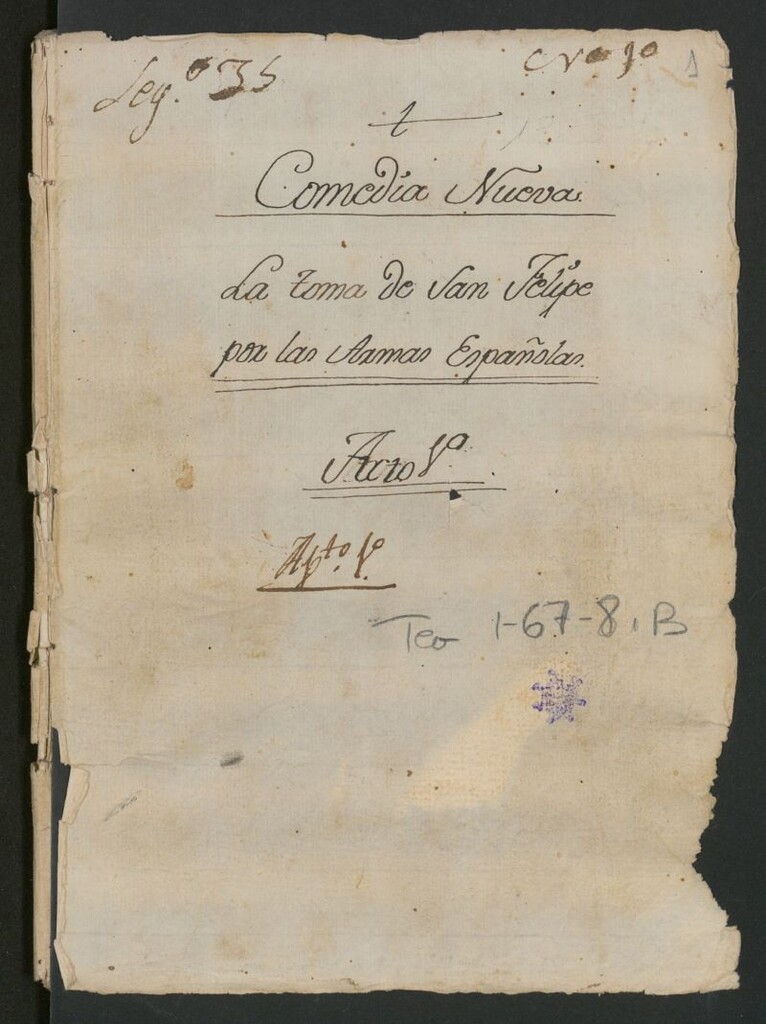 Leg.º 35
Nº 1º
1
Comedia Nueva.
La toma de San Felipe
por las Armas Españolas.
Acto 1º
Apto. 1º
Tea 1-67-8, B